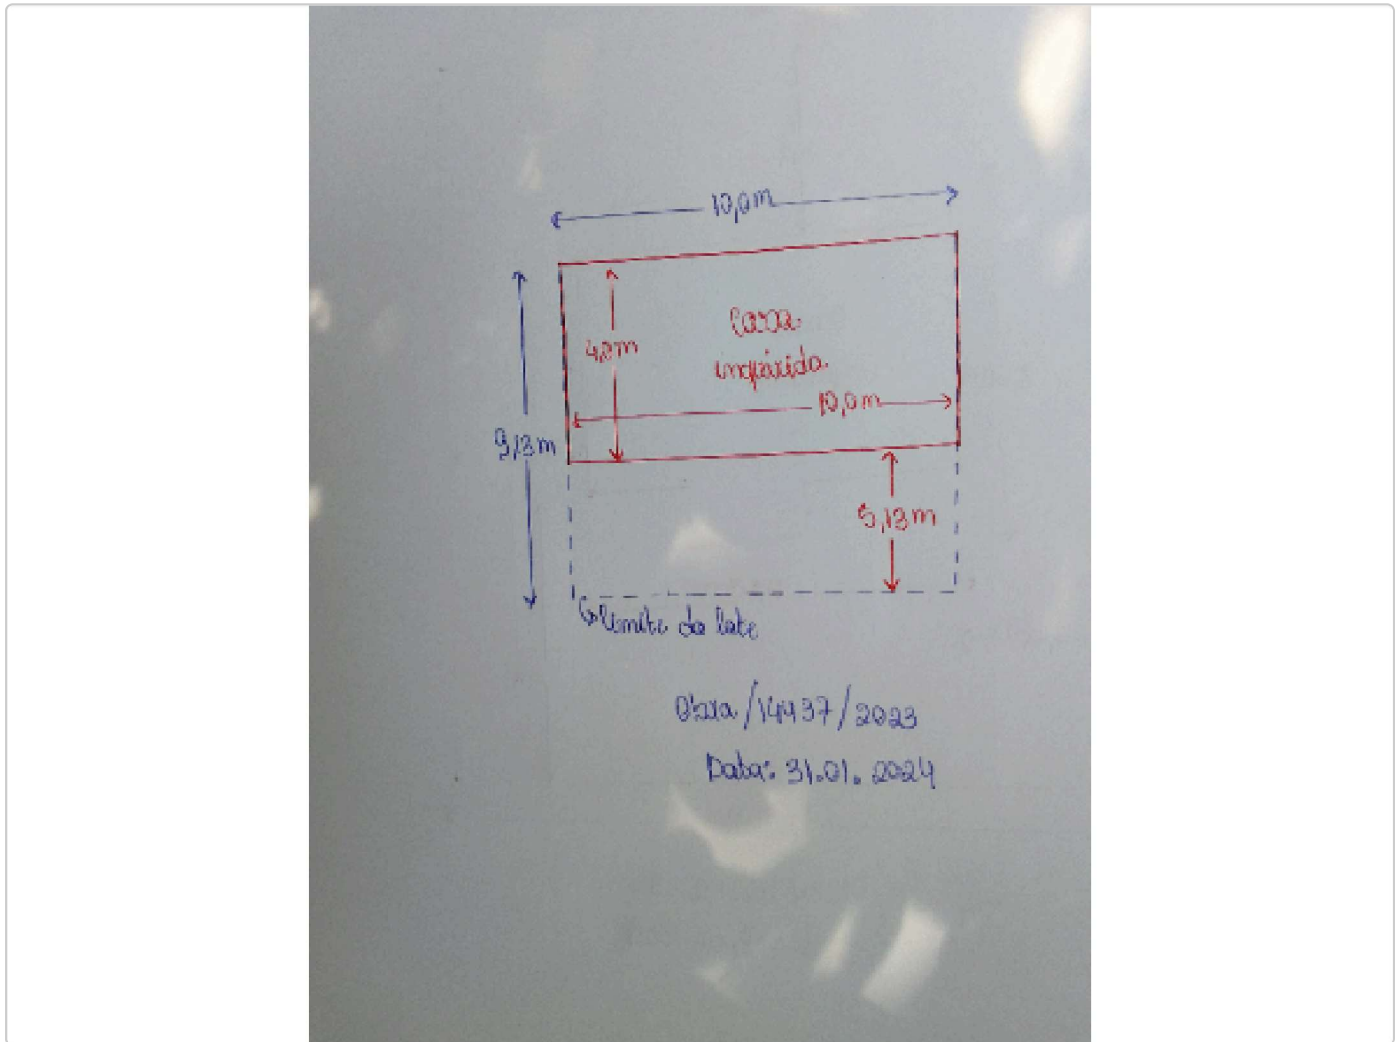 10,0m
4,0m
Casa
inquirida
10,0m
9,13m
5,13m
limite do lote
Obra/14437/2023
Data: 31.01.2024